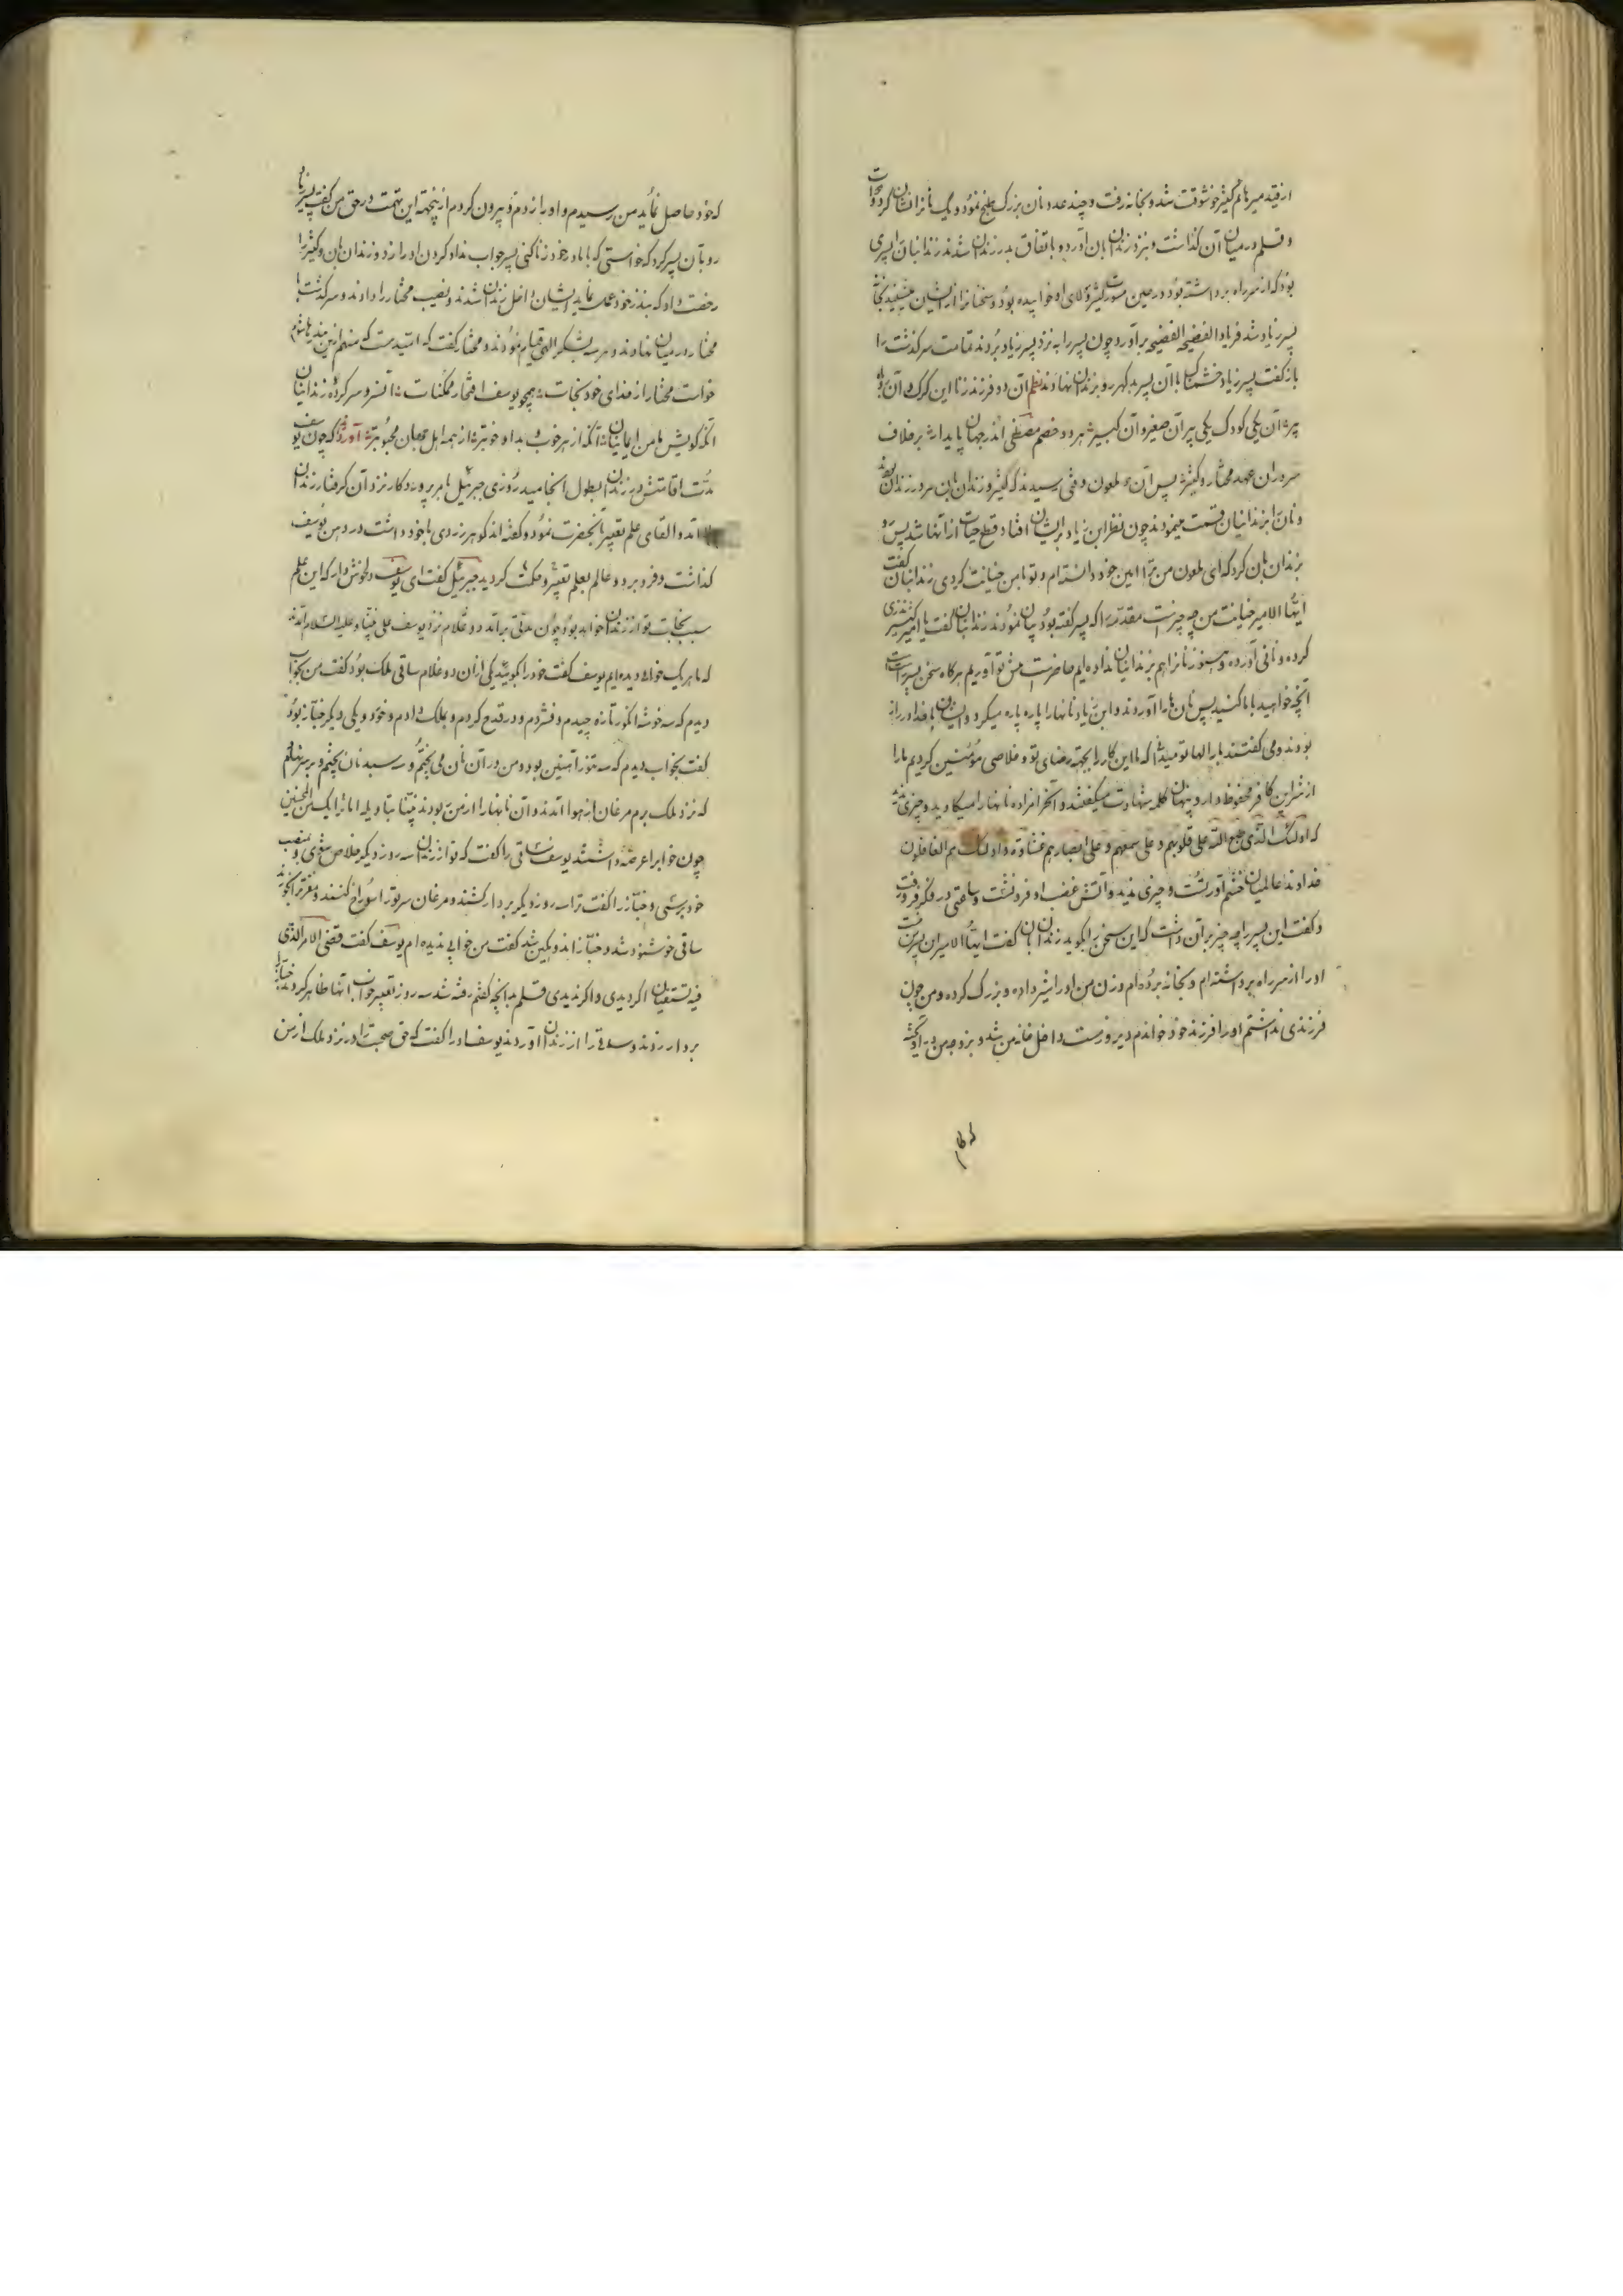 از قید میرهانم کنیز خوشوقت شد و بخانه رفت و چند عدد نان بزرک طبخ نمود و یک نانرا نشان کرد و دوات
و قلم در میان آن کذاشت و نزد زندان بان آورد و باتفاق بدر زندان شدند زندانبان را پسری
بود که از سر راه برداشته بود در حین مشورت کنیز و لای او خوابیده بود و سخنانرا از ایشان میشنید بخانه
پسر زیاد شد فریاد الفضیحه الفضیحه برآورد چون پسر را به نزد پسر زیاد بردند تمامت سرکذشت را
بازکفت پسر زیاد خشمناک با آن پسر بدکهر رو بزندان نهادند نظم آن دو فرزند زنا این کرک و آن
پیر آن یکی کودک یکی پیر آن صغیر و آن کبیر هر دو خصم مصطفی اندر جهان پایدار بر خلاف
سروران عهد مختار و کنیز پس آن ملعون وقتی رسیدند که کنیز و زندان بان در زندان بودند
و نان را بزندانیان قسمت مینمودند چون نظر ابن زیاد بر ایشان افتاد قطع حیات از آنها شد پس رو
بزندان بان کرد که ای ملعون من ترا امین خود دانسته ام و تو با من خیانت کردی زندانبان کفت
ایها الامیر خیانت من چه چیزست مقدمه را که پسر کفته بود بیان نمودند زندانبان کفت یا امیر کنیز نذری
کرده و نانی آورده و هنوز نانرا هم بزندانیان نداده ایم حاضرست پیش تو آوریم هرکاه سخن پسر راست است
آنچه خواهید با ما کنید پس نان ها را آوردند و ابن زیاد نانها را پاره پاره میکرد و ایشان با خدا در راز
بودند و می کفتند بار الها تو میدانی که ما این کار را بجهة رضای تو و خلاصی مؤمنین کردیم ما را
از شر این کافر محفوظ دار و پنهان کلمه شهادت میکفتند و آنحرامزاده نانها را میکاوید و چیزی ندید
که اولئک الذی طبع الله علی قلوبهم و علی سمعهم و علی ابصارهم غشاوة و اولئک هم الغافلون
خداوند عالمیان خشم آورتست و چیزی ندید و آتش غضب او فرونشست و ساعتی در فکر فرورفت
و کفت این پسر را چه چیز بر آن داشت که این سخن را بکوید زندان بان کفت ایها الامیر این پسر
او را از سر راه برداشته ام و بخانه برده ام و زن من او را شیر داده و بزرک کرده و من چون
فرزندی نداشتم او را فرزند خود خواندم دیروزست داخل خانه من شد و بزوجه من
که خود حاصل نماید من رسیدم و او را زدم و بیرون کردم از ینجهة این تهمت در حق من کفت پسر زیاد
رو بآن پسر کرد که خواستی که با مادر خود زنا کنی پسر جواب نداد کردن او را زد و زندان بان و کنیز را
رخصت داد که بنذر خود عمل نمایند ایشان داخل زندان شدند و نصیب مختار را دادند و سرکذشت با
مختار در میان نهادند و سر بشکر الهی قیام نمودند و مختار کفت که امیدست که منهم از این بند رها شوم
خواست مختار از خدای خود نجات همچو یوسف افتخار ممکنات آنسرو سرکرده زندانیان
آنکه کویش مامن ایمانیان آنکه از هر خوب و بد او خوبتر از همه اهل جهان محبوبتر آورده‌اند که چون یوسف
مدت اقامتش در زندان بطول انجامید روزی جبرئیل بامر پروردکار نزد آن کرفتار زندان
آمد و القای علم تعبیر بآنحضرت نمود و کفته اند کوهر زردی با خود داشت در دهن یوسف
کذاشت و فرو برد و عالم بعلم تعبیر و حکمت کردید جبرئیل کفت ای یوسف دلخوش دار که این علم
سبب نجات تو از زندان خواهد بود چون مدتی برآمد دو غلام نزد یوسف علی نبینا و علیه السلام آمدند
که ما هر یک خوابی دیده ایم یوسف کفت خود را بکوئید یکی از آن دو غلام ساقی ملک بود کفت من بخواب
دیدم که سه خوشه انکور تازه چیدم و فشردم و در قدح کردم و بملک دادم و خورد و یکی دیکر خباز بود
کفت بخواب دیدم که سه تنور آتشین بود و من در آن نان می پختم و سه سبد نان پختم و بر سر نهادم
که نزد ملک برم مرغان از هوا آمدند و آن نانها را از من ربودند نبئنا بتاویله انا نریک من المحسنین
چون خوابرا عرضه داشتند یوسف ساقی را کفت که تو از زندان سه روز دیکر خلاص شوی و بمنصب
خود برسی و خباز را کفت ترا سه روز دیکر بردار کشند و مرغان سر تو را سوراخ کنند و مغز ترا بخورند
ساقی خوشنود شد و خباز اندوهکین شد کفت من خوابی ندیده ام یوسف کفت قضی الامر الذی
فیه تستفتیان اکر دیدی و اکر ندیدی قلم بدانچه کفتم رفته شد سه روز تعبیر خواب آنها ظاهر کردید خباز را
بردار زدند و ساقی را از زندان آوردند یوسف او را کفت که حق صحبت را در نزد ملک از من